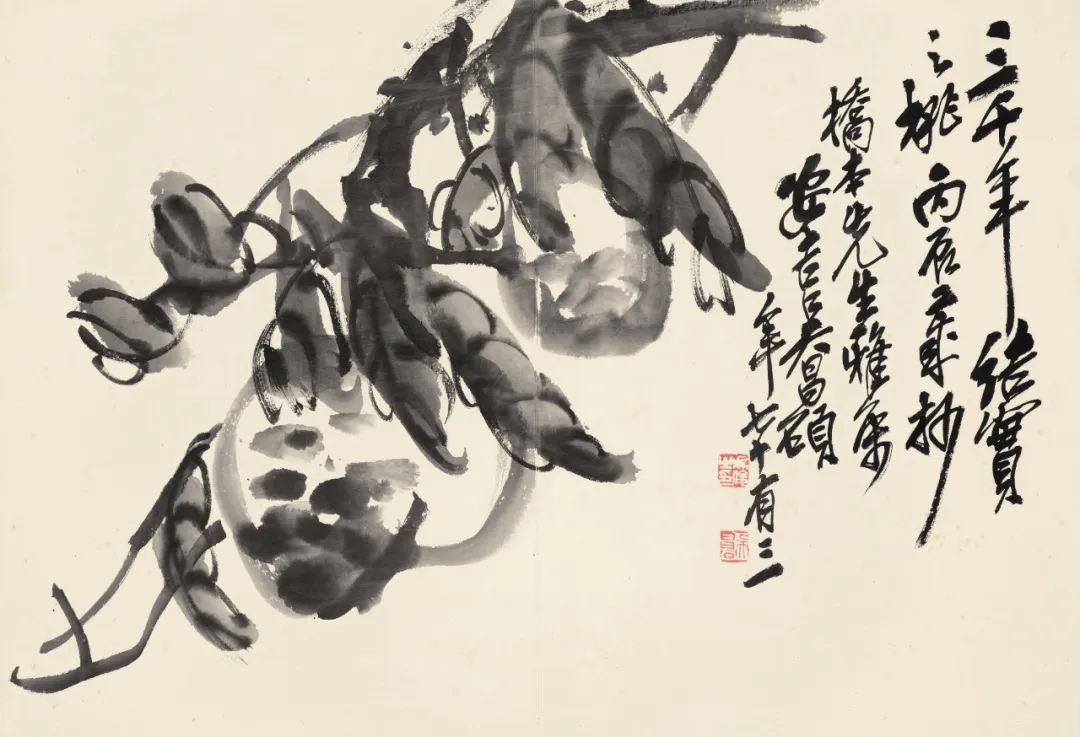 三千年結實
之桃丙辰歲杪
橋本先生雅屬
安吉吳昌碩
年七十有三